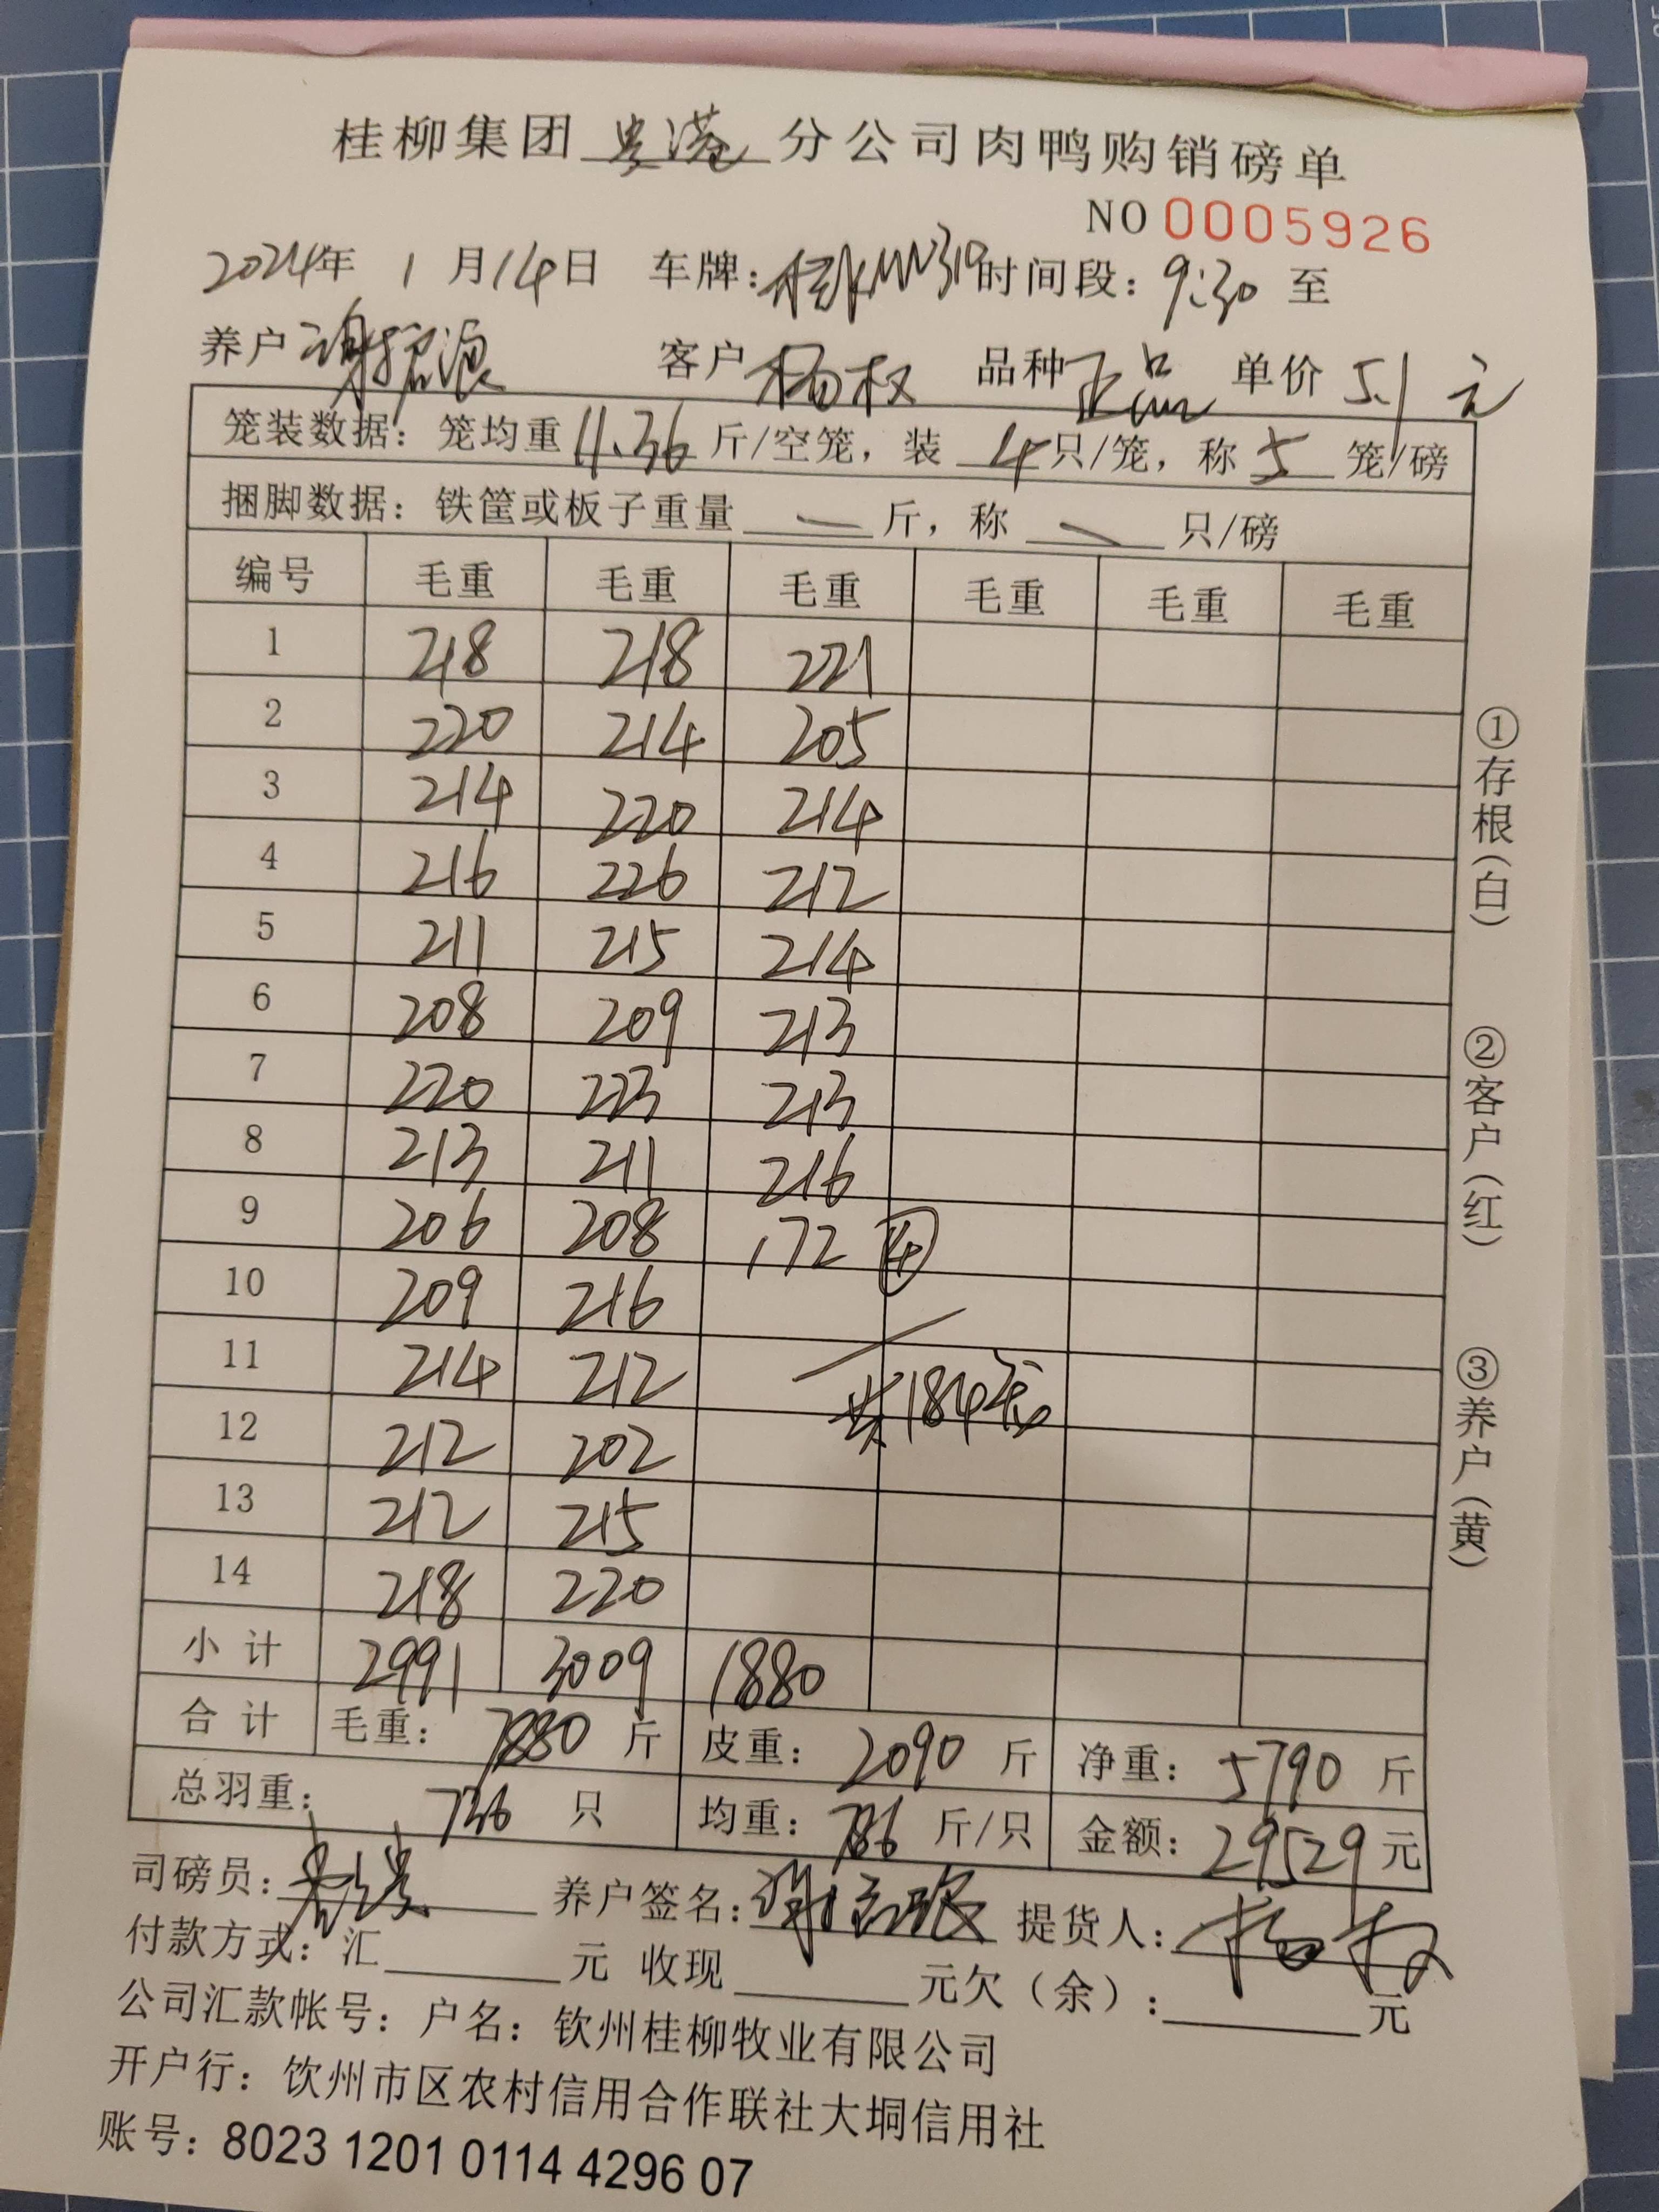 桂柳集团贵港分公司肉鸭购销磅单
NO 0005926
2024年 1月14日 车牌: 时间段: 9:30 至
养户 客户 杨权 品种 正品 单价 5.1 元
笼装数据: 笼均重 11.36 斤/空笼, 装 4 只/笼, 称 5 笼/磅
捆脚数据: 铁筐或板子重量 — 斤, 称 — 只/磅
编号 毛重 毛重 毛重 毛重 毛重 毛重
1 218 218 221
2 220 214 205
3 214 220 214
4 216 226 212
5 211 215 214
6 208 209 213
7 220 223 213
8 213 211 216
9 206 208 172 ④
10 209 216
11 214 212
共184笼
12 212 202
13 212 215
14 218 220
小计 2991 3009 1880
合计 毛重: 7880 斤 皮重: 2090 斤 净重: 5790 斤
总羽重: 736 只 均重: 7.86 斤/只 金额: 29529 元
司磅员: 养户签名: 提货人: 杨权
付款方式: 汇 元 收现 元欠(余): 元
公司汇款帐号: 户名: 钦州桂柳牧业有限公司
开户行: 钦州市区农村信用合作联社大垌信用社
账号: 8023 1201 0114 4296 07
①存根(白)
②客户(红)
③养户(黄)